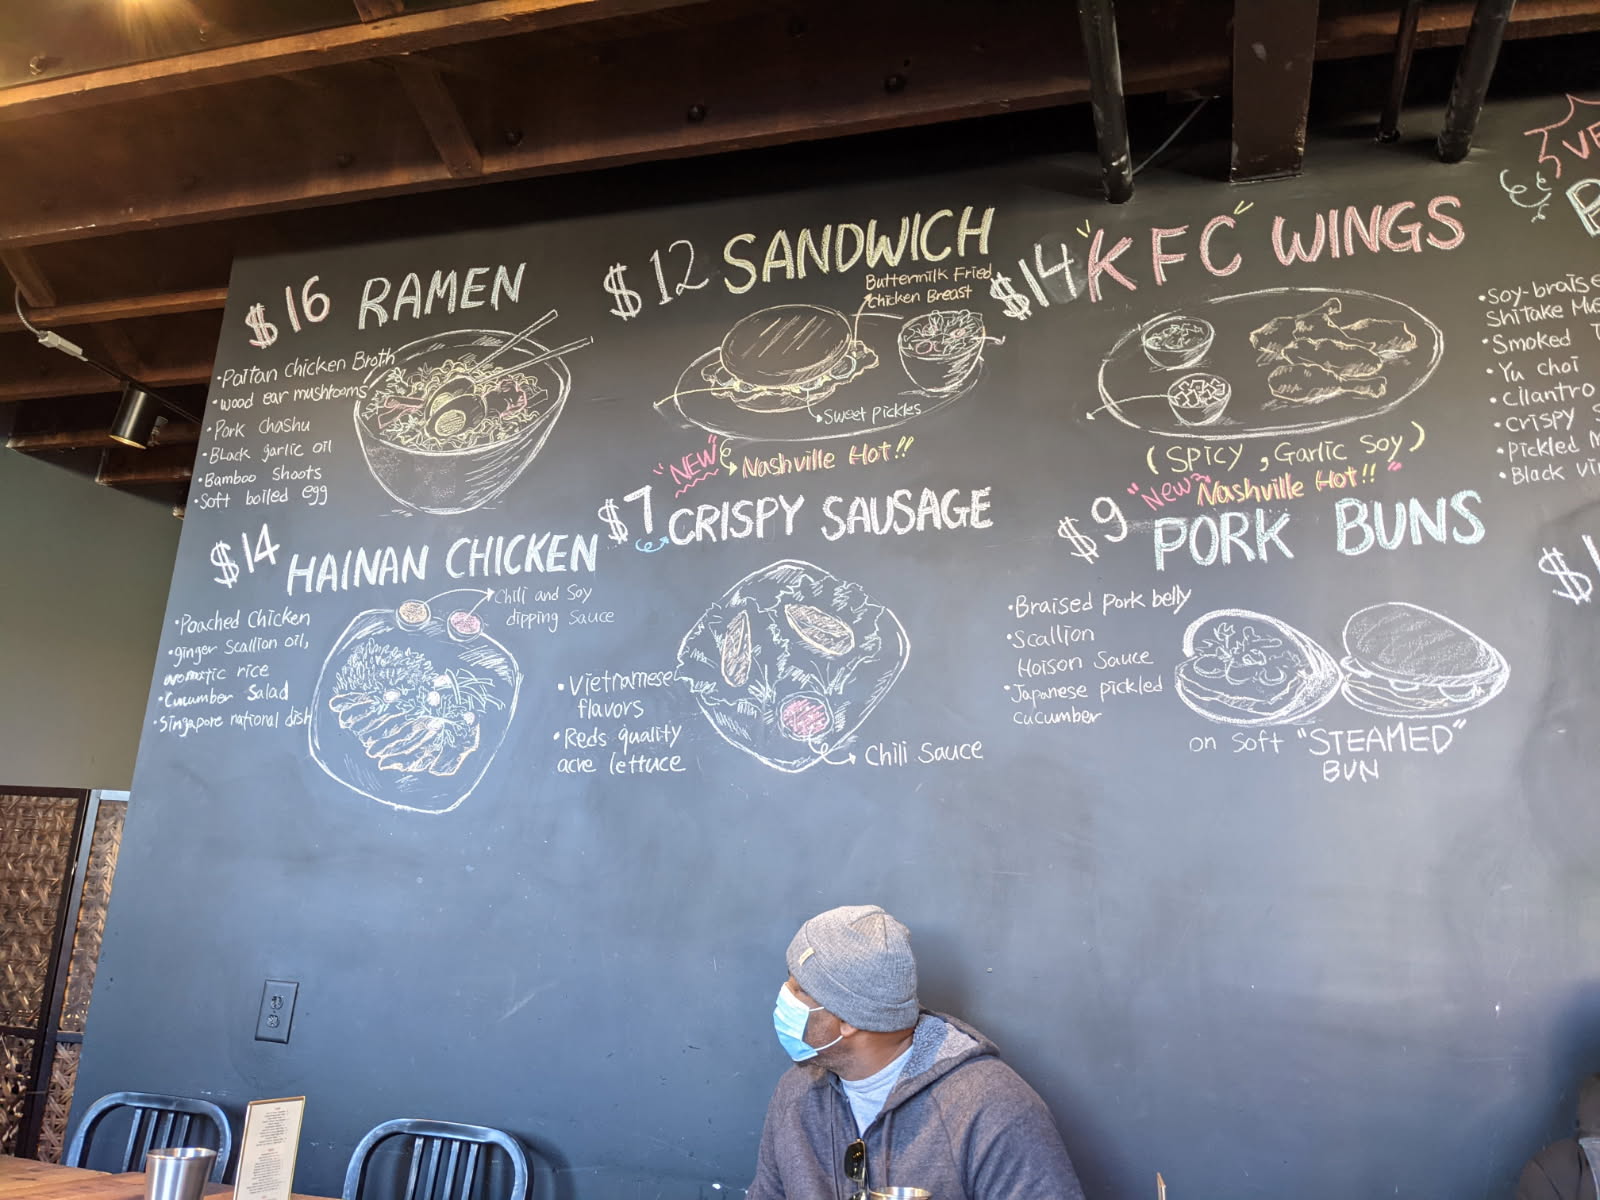 $16 RAMEN
• Paitan Chicken Broth
• wood ear mushrooms
• Pork Chashu
• Black garlic oil
• Bamboo Shoots
• Soft boiled egg
$12 SANDWICH
Buttermilk Fried
Chicken Breast
Sweet pickles
"NEW" Nashville Hot!!
$14 "KFC" WINGS
(SPICY, Garlic Soy)
"New" Nashville Hot!!"
• Soy-braise
Shitake Mus
• Smoked
• Yu choi
• Cilantro
• Crispy S
• Pickled M
• Black vi
$14 HAINAN CHICKEN
Chili and Soy
dipping Sauce
• Poached Chicken
• ginger Scallion oil,
aromatic rice
• Cucumber Salad
• Singapore national dish
$7 CRISPY SAUSAGE
• Vietnamese
flavors
• Reds quality
acre lettuce
Chili Sauce
$9 PORK BUNS
• Braised pork belly
• Scallion
Hoison Sauce
• Japanese pickled
cucumber
on Soft "STEAMED"
BUN